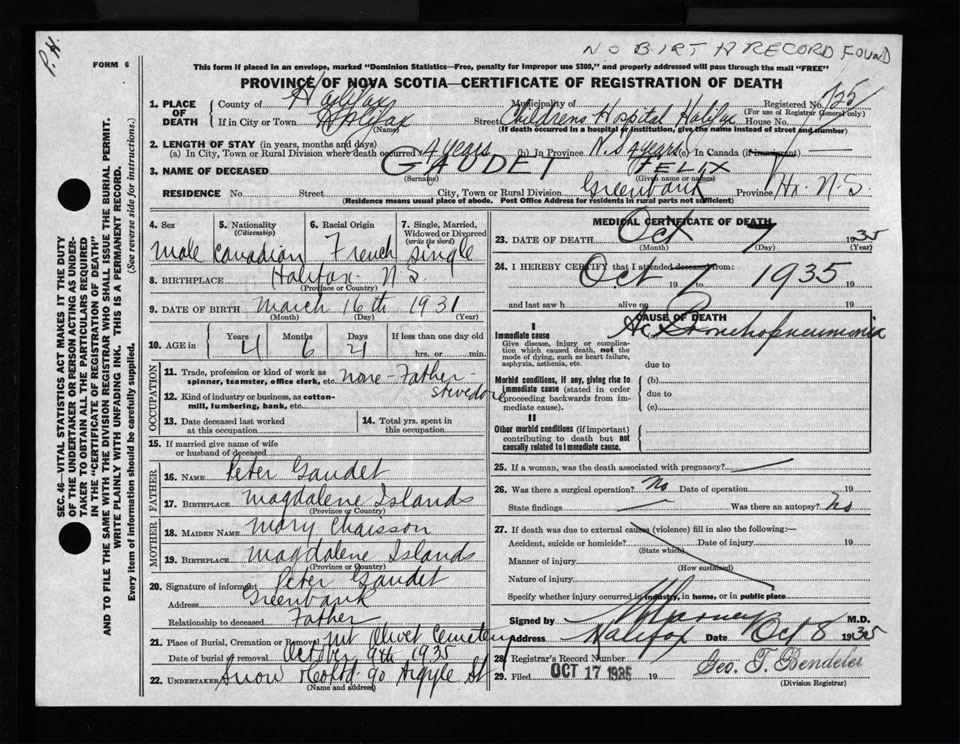 P.H.
NO BIRTH RECORD FOUND
FORM 6
This form if placed in an envelope, marked "Dominion Statistics—Free, penalty for improper use $300," and properly addressed will pass through the mail "FREE"
PROVINCE OF NOVA SCOTIA—CERTIFICATE OF REGISTRATION OF DEATH
SEC. 46—VITAL STATISTICS ACT MAKES IT THE DUTY
OF THE UNDERTAKER OR PERSON ACTING AS UNDER-
TAKER TO OBTAIN ALL THE PARTICULARS REQUIRED
IN THE "CERTIFICATE OF REGISTRATION OF DEATH"
AND TO FILE THE SAME WITH THE DIVISION REGISTRAR WHO SHALL ISSUE THE BURIAL PERMIT.
WRITE PLAINLY WITH UNFADING INK. THIS IS A PERMANENT RECORD.
Every item of information should be carefully supplied. (See reverse side for instructions.)
1. PLACE OF DEATH County of Halifax Municipality of Registered No. 725
(For use of Registrar General only)
If in City or Town Halifax Street Childrens Hospital Halifax House No.
(Name) (If death occurred in a hospital or institution, give the name instead of street and number)
2. LENGTH OF STAY (in years, months and days)
(a) In City, Town or Rural Division where death occurred 4 years (b) In Province N.S 4 years (c) In Canada (if immigrant)
3. NAME OF DECEASED GAUDET FELIX
(Surname) (Given name or names)
RESIDENCE No. Street City, Town or Rural Division Greenbank Province Hx. N.S.
(Residence means usual place of abode. Post Office Address for residents in rural parts not sufficient)
4. Sex 5. Nationality (Citizenship) 6. Racial Origin 7. Single, Married, Widowed or Divorced (write the word)
Male Canadian French Single
8. BIRTHPLACE Halifax N.S.
(Province or Country)
9. DATE OF BIRTH March 16th 1931
(Month) (Day) (Year)
10. AGE in Years Months Days If less than one day old
4 6 21 hrs. or min.
OCCUPATION
11. Trade, profession or kind of work as spinner, teamster, office clerk, etc. none - Father - stevedore
12. Kind of industry or business, as cotton-mill, lumbering, bank, etc.
13. Date deceased last worked at this occupation
14. Total yrs. spent in this occupation
15. If married give name of wife or husband of deceased
FATHER
16. NAME Peter Gaudet
17. BIRTHPLACE Magdalene Islands
(Province or Country)
MOTHER
18. MAIDEN NAME Mary Chaisson
19. BIRTHPLACE Magdalene Islands
(Province or Country)
20. Signature of informant Peter Gaudet
Address Greenbank
Relationship to deceased Father
21. Place of Burial, Cremation or Removal Mt Olivet Cemetery
Date of burial or removal October 9th 1935
22. UNDERTAKER Snow 90 Argyle St
(Name and address)
MEDICAL CERTIFICATE OF DEATH
23. DATE OF DEATH Oct 7 1935
(Month) (Day) (Year)
24. I HEREBY CERTIFY that I attended deceased from:
Oct 7 19 to 1935 19
and last saw h alive on 19
CAUSE OF DEATH
I
Immediate cause
Give disease, injury or complication which caused death, not the mode of dying, such as heart failure, asphyxia, asthenia, etc.
(a) Ac Bronchopneumonia
due to
Morbid conditions, if any, giving rise to immediate cause (stated in order proceeding backwards from immediate cause).
(b)
due to
(c)
II
Other morbid conditions (if important) contributing to death but not causally related to immediate cause.
25. If a woman, was the death associated with pregnancy?
26. Was there a surgical operation? No Date of operation 19
State findings Was there an autopsy? No
27. If death was due to external causes (violence) fill in also the following:—
Accident, suicide or homicide? Date of injury 19
(State which)
Manner of injury
(How sustained)
Nature of injury
Specify whether injury occurred in industry, in home, or in public place
Signed by M.D.
Address Halifax Date Oct 8 1935
28. Registrar's Record Number
29. Filed OCT 17 1935 19 Geo. T. Bendeler
(Division Registrar)